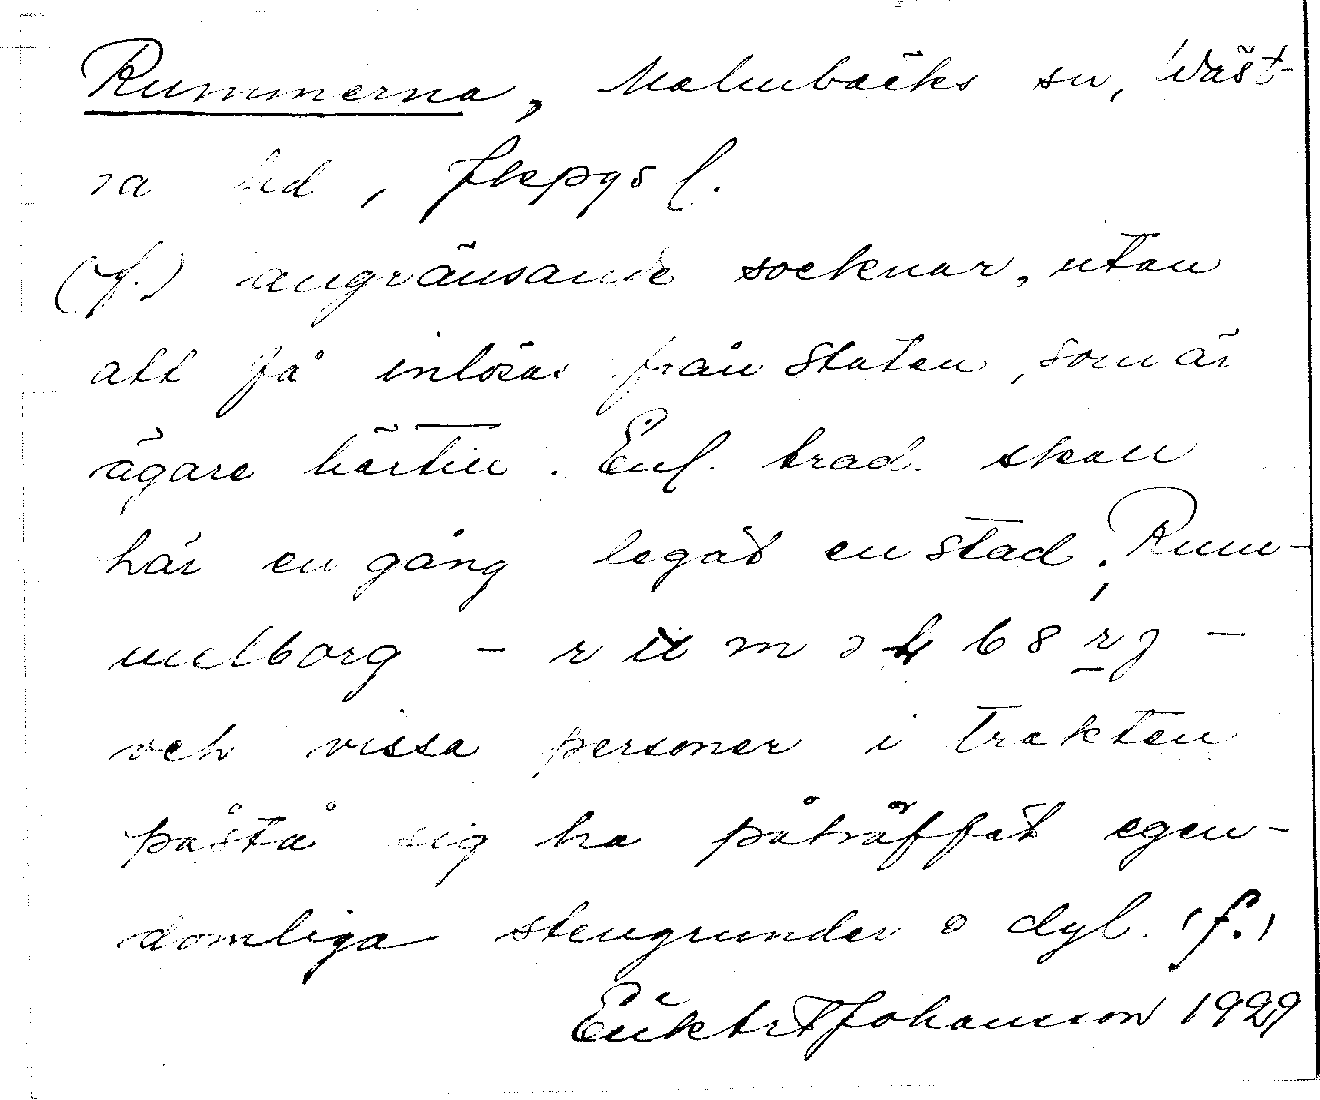 Rummerna, Malmbäcks sn, Väst-
ra hd, Jkpgs l.
(f.) angränsande socknar, utan
att få inlösas från Staten, som är
ägare härtill. Enl. trad. skall
här en gång legat en stad, Rum-
melborg —
och vissa personer i trakten
påstå sig ha påträffat egen-
domliga stengrunder o dyl. (f.)
Johansson 1929